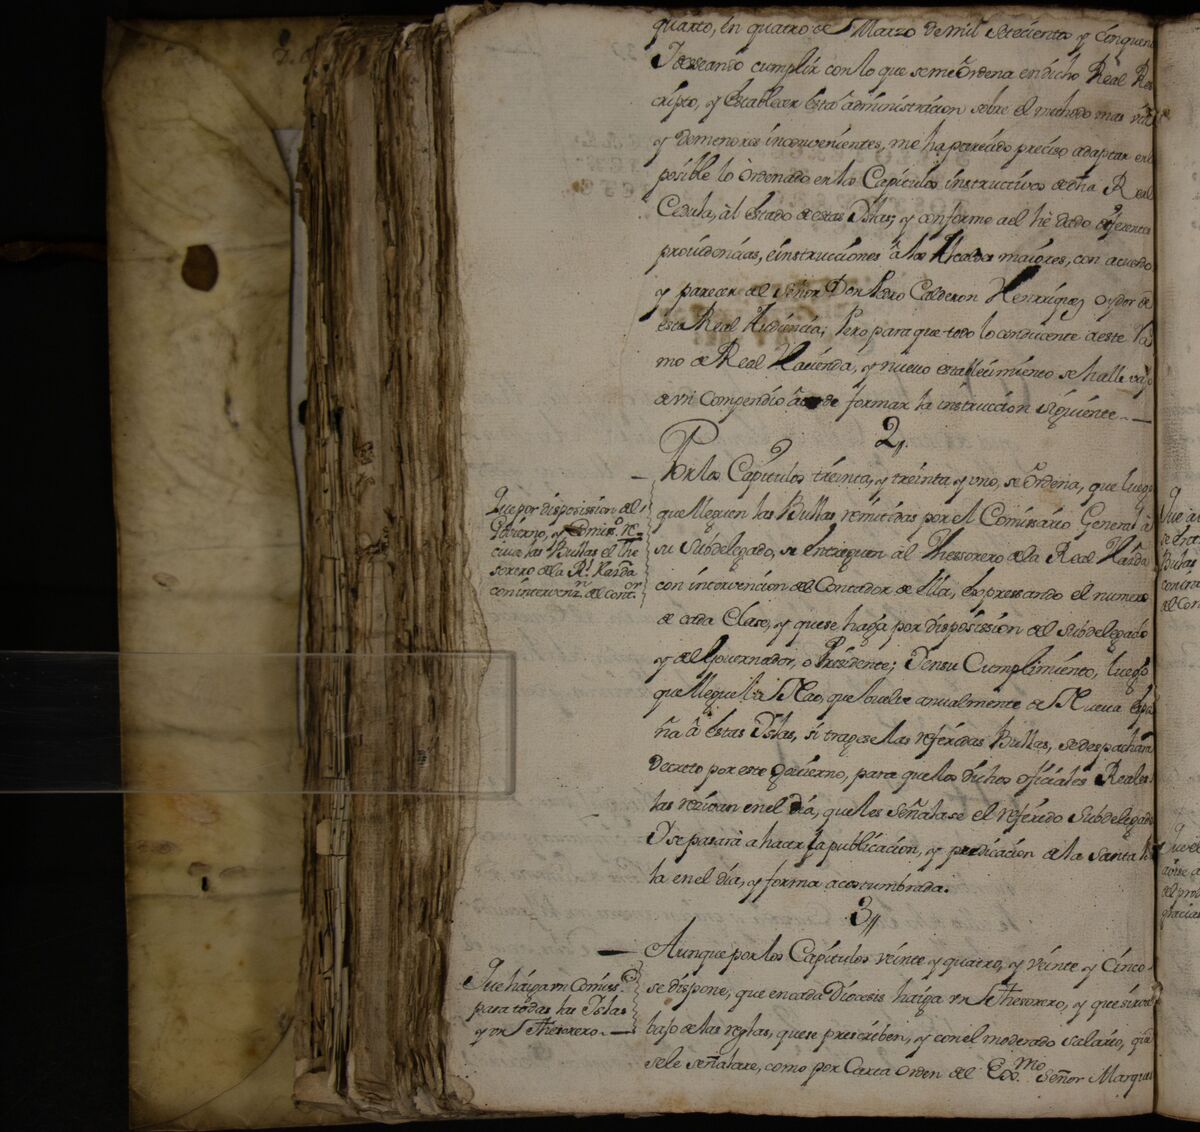 quarto, en quatro de Marzo de mil setecientos y cinquen
Y deseando cumplir con lo que se me Ordena en dicho Real Res
cripto, y establecer esta administracion sobre el methodo mas util
y de menores inconvenientes, me ha parecido preciso adaptar en lo
posible lo Ordenado en los Capitulos instructivos de dha Real
Cedula, àl estado de estas Yslas; y conforme a el hè dado diferentes
providencias, è instrucciones â los Alcaldes maiores, con acuerdo
y parecer del Señor Don Pedro Calderon Henrriquez Oydor de
esta Real Audiencia; Pero para que todo lo conducente a este Ra
mo de Real Hacienda, y nuevo establecimiento se halle vajo
de vn Compendio de formar la instruccion siguiente.
2,,
Por los Capitulos treinta, y treinta y uno, se Ordena, que luego
que lleguen las Bullas remitidas por el Comissario General à
su Subdelegado, se entreguen al Thessorero de la Real Hazda
con intervencion del Contador de ella, expressando el numero
de cada Clase, y que se haga por disposission del Subdelegado
y del Governador, o Presidente; Y en su Cumplimiento, luego
que llegue la Nao, que buelve anualmente de Nueva Espa
ña â estas Yslas, si tragese las referidas Bullas, se despachara
Decreto por este govierno, para que los dichos oficiales Reales
las recivan en el dia, que les señalase el referido Subdelegado
Y se pasarà a hacer la publicacion, y predicacion de la Santa Bu
la en el dia, y forma acostumbrada.
Que por disposission del
Govierno, y Comisso. re
civa las Bullas el The
sorero de la Rl. Hazda
con intervenzn. del contor.
3,,
Aunque por los Capitulos veinte y quatro, y veinte y Cinco
se dispone, que en cada Diocesis haiga vn Thesorero, y que sirva
bajo de las reglas, que se prescriben, y con el moderado salario, que
se le señalare, como por Carta orden del Exmo. Señor Marques
Que haiga vn Comiss.o
para todas las Yslas
y vn Thesorero.